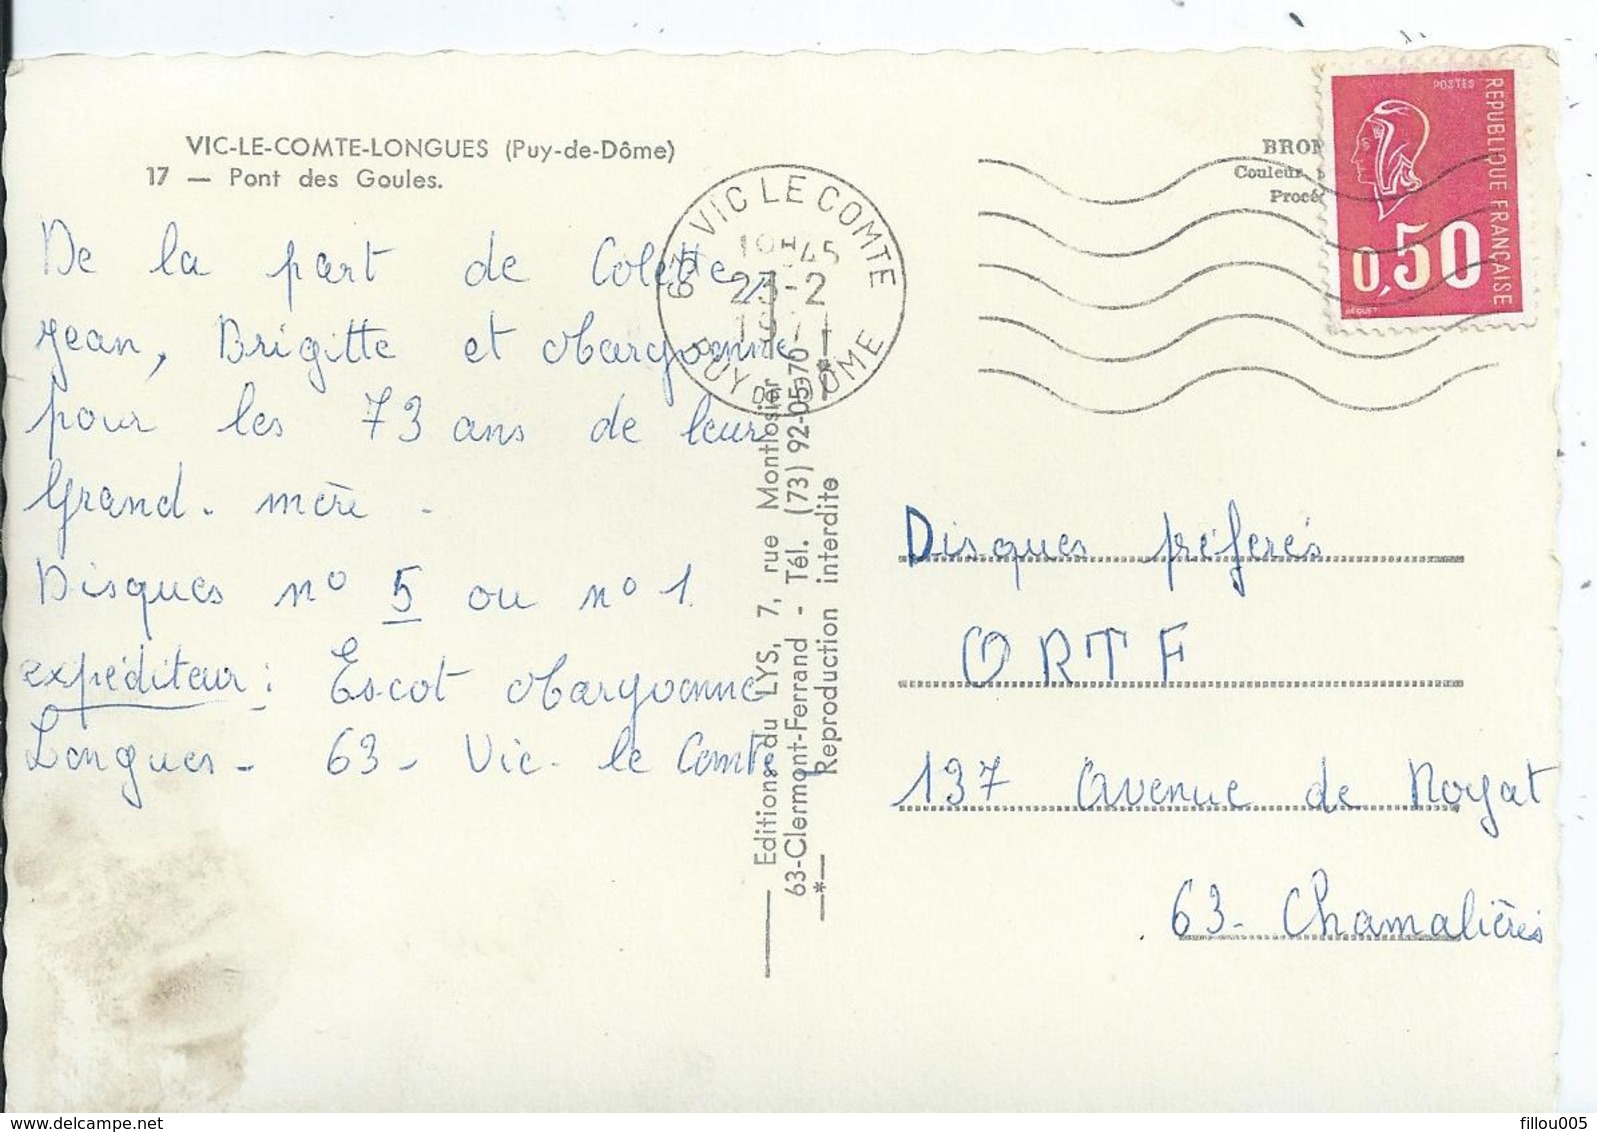 VIC-LE-COMTE-LONGUES (Puy-de-Dôme)
17 — Pont des Goules.
De la part de Colette,
Jean, Brigitte et Maryvonne
pour les 73 ans de leur
Grand-mère.
Disques n° 5 ou n° 1.
expéditeur : Escot Maryvonne
Longues - 63 - Vic-le Comte
63 VIC LE COMTE
19H45
23-2
1971
PUY DE DOME
Editions du LYS, 7, rue Montlosier
63-Clermont-Ferrand - Tél. (73) 92-05-70
—*— Reproduction interdite —*—
Couleur
POSTES
REPUBLIQUE FRANÇAISE
0,50
BEQUET
Disques préferés
ORTF
137 Avenue de Royat
63 - Chamalières
delcampe.net
fillou005